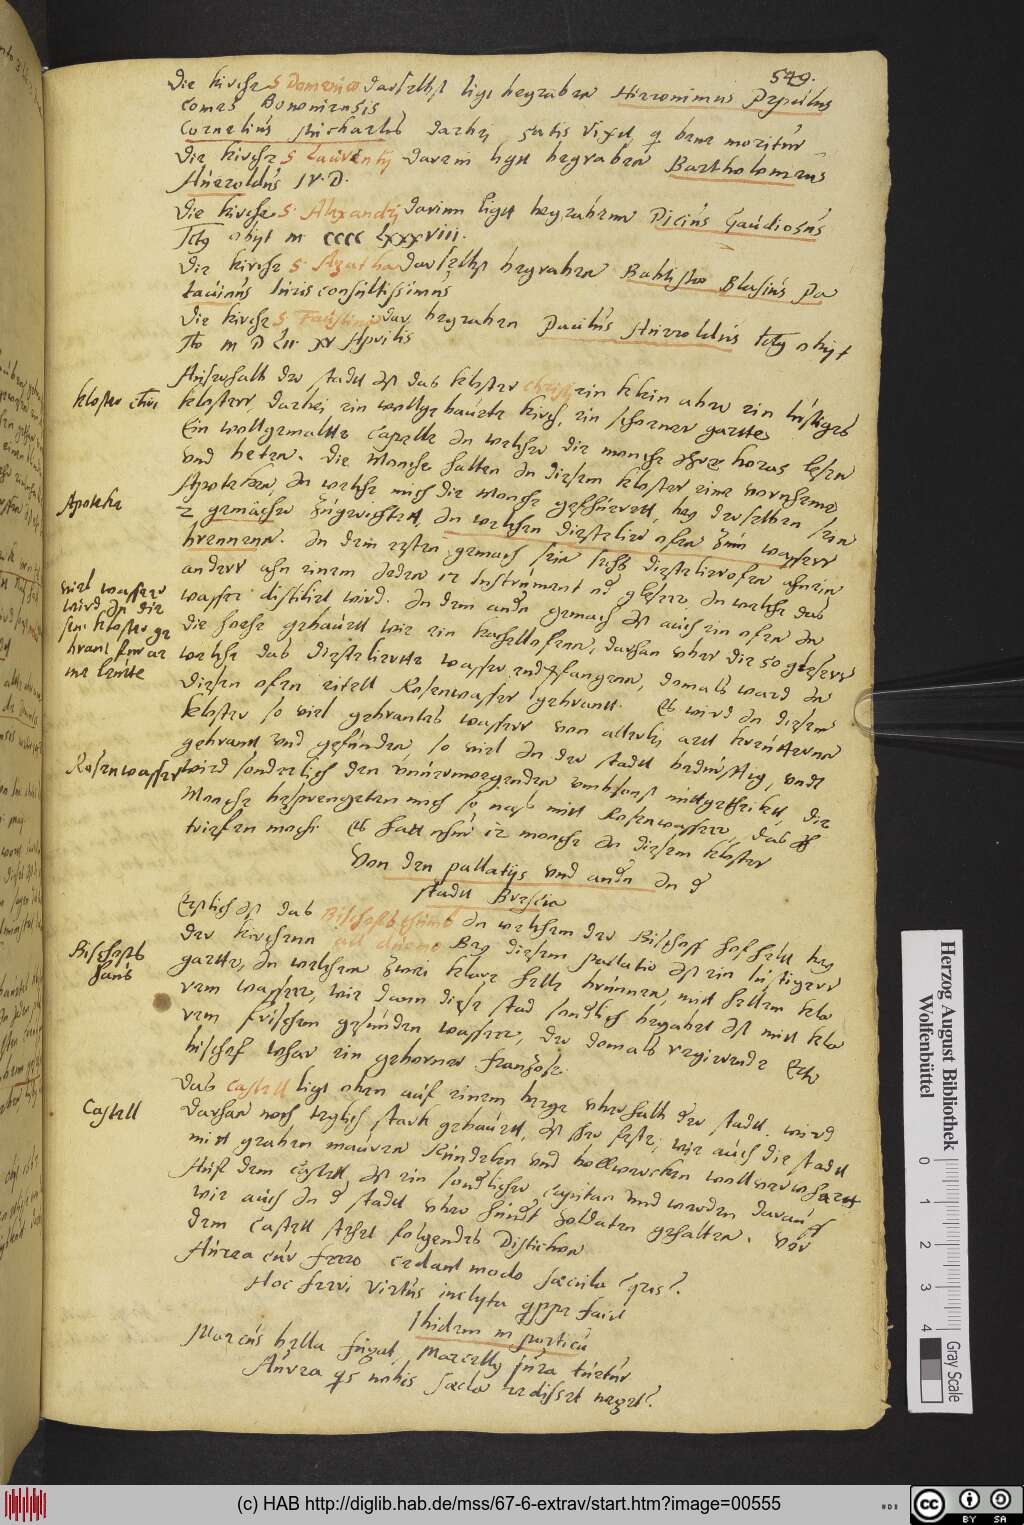 549.
Die kirche S Domenico daselbst ligt begraben Hieronimus Pepulus
comes Bononiensis
Cornelius Michaelis darbej satis vixit, q bene moritur
Die kirche S Laurentij darein ligtt begraben Bartholomeus
Aueroldus IV. D.
Die kirche S. Alexandrj darinn ligtt begrabenn Dicius Gaudiosus
obijt M CCCC LXXXVIII.
Die kirche S. Agatha daselbst begraben Babtista Blasius Pa
tauinus Iuris consultissimus
Die kirche S Faustino dar begraben Paulus Aueroldus obijt
M D LII XV Aprilis
Auserhalb der stadtt ist das kloster Christj ein klein aber ein lustiges
kloster ctri
klosterr, darbej ein wollgebaute kirch, ein schoener gartte
Ein wollgemaltte Capelle in welcher die monche ihre horas lesen
vnd beten. Die Monche halten in diesem kloster eine vornheme
Apoteka
Apoteken, in welche mich die Monche gefhürett, bej derselben sein
2 gemächer zugerichtett, in welchen distelier ofen zum wasserr
brennenn. In dem ersten gemach sein sechs distelierofen ahn ein
ander ahn einem ieden 12 Instrument gleserr, in welche das
viel wasser
wird in die
sem kloster ge
brant fur ar
me leutte
wasser distiliert wird. In dem andn gemach ist auch ein ofen in
die hoehe gebauett wie ein kachellofenn, darhan vber die 50 gleserr
welche das distelierette wasser endtpfangenn, domals ward in
diesen ofen eitell Rosenwasser gebrantt. Es wird in diesem
kloster so viel gebrantes wasserr von allerlej artt kreutterenn
gebrantt vnd gefunden, so viel in der stadtt bedürftig, vndt
Rosenwasser
wird sonderlich den vnuermoegenden vmbsonst mittgetheiltt, die
Monche besprengeten mich so nass mitt Rosenwasserr, das ich
triefen moch. Es hatt nhur 12 monche in diesem kloster
Von den pallatijs vnd andn in d
stadtt Brescia
Erstlich ist das Bischofs thumb in welchem der Bischoff hofheltt bej
der kirchenn all duomo Bey diesem pallatio ist ein lustigerr
Bischofs
haus
gartte, in welchem zwei klare helle brunnen, mitt hellem kla
rem wasserr, wie dann diese stad sondlich begabet ist mitt kla
rem frischem gesunden wasserr, der domals regierende Ertz
bischof whar ein geborner franzose.
Das Castell ligt oben auf einem berge vberhalb der stadtt, wird
Castell
darhan noch teglich stark gebauett, ist sher feste, wie auch die stadtt
mitt graben mauren Rundelen vnd bollwercken wollverwharett
Auf dem Castell, ist ein sondlicher Capitan vnd werden darauff
wie auch in d stadtt vber hundt Soldaten gehalten. Vor
dem Castell stehet folgendes Distichon
Aurea cur ferro cedant modo saecula quaeris?
Hoc ferri virtus inclyta ppe facit
Ibidem in porticu
Marcus bella fugat, Marcellj iura tuetur
Aurea qs nobis saecla redisse neget?
Herzog August Bibliothek
Wolfenbüttel
0 1 2 3 4
Gray Scale
(c) HAB http://diglib.hab.de/mss/67-6-extrav/start.htm?image=00555
cc BY SA